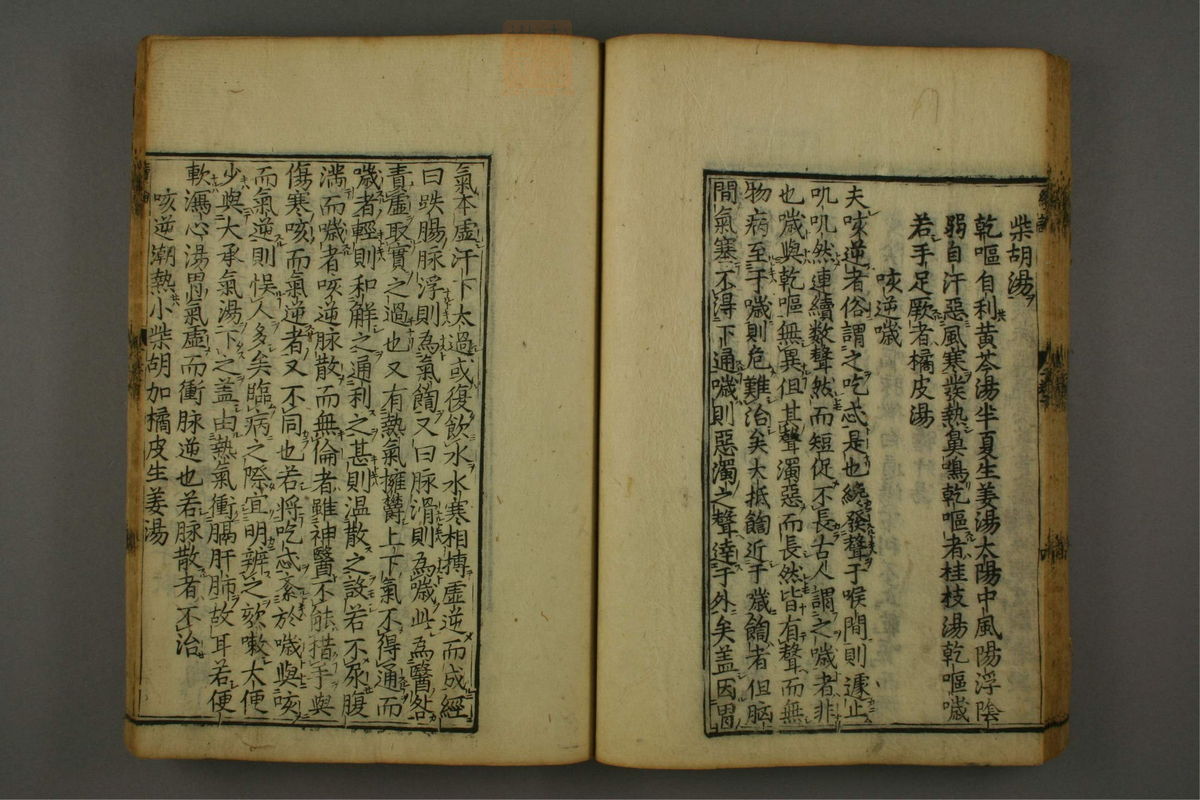 柴胡湯
乾嘔自利黄芩湯半夏生姜湯太陽中風陽浮陰
弱自汗惡風寒發熱鼻鳴乾嘔者桂枝湯乾嘔噦
若手足厥者橘皮湯
咳逆噦
夫咳逆者俗謂之吃忒是也纔發聲于喉間則遽止
吼吼然連續数聲然而短促不長古人謂之噦者非
也噦與乾嘔無異但其聲濁惡而長然皆有聲而無
物病至于噦則危難治矣大抵䭇近于噦䭇者但胸
間氣塞不得下通噦則惡濁之聲達于外矣盖因胃
氣本虚汗下太過或復飲水水寒相搏虚逆而成經
曰趺腸脉浮則為氣䭇又曰脉滑則為噦此為醫咎
責虚取實之過也又有熱氣擁欝上下氣不得通而
噦者輕則和解之通利之甚則温散之設若不尿腹
満而噦者咳逆脉散而無倫者雖神醫不能措手與
傷寒咳而氣逆者又不同也若將吃忒紊於噦與咳
而氣逆則悞人多矣臨病之際宜明辨之欬嗽大便
少與大承氣湯下之盖由熱氣衝膈肝肺故耳若便
軟瀉心湯胃氣虚而衝脉逆也若脉散者不治
咳逆潮熱小柴胡加橘皮生姜湯